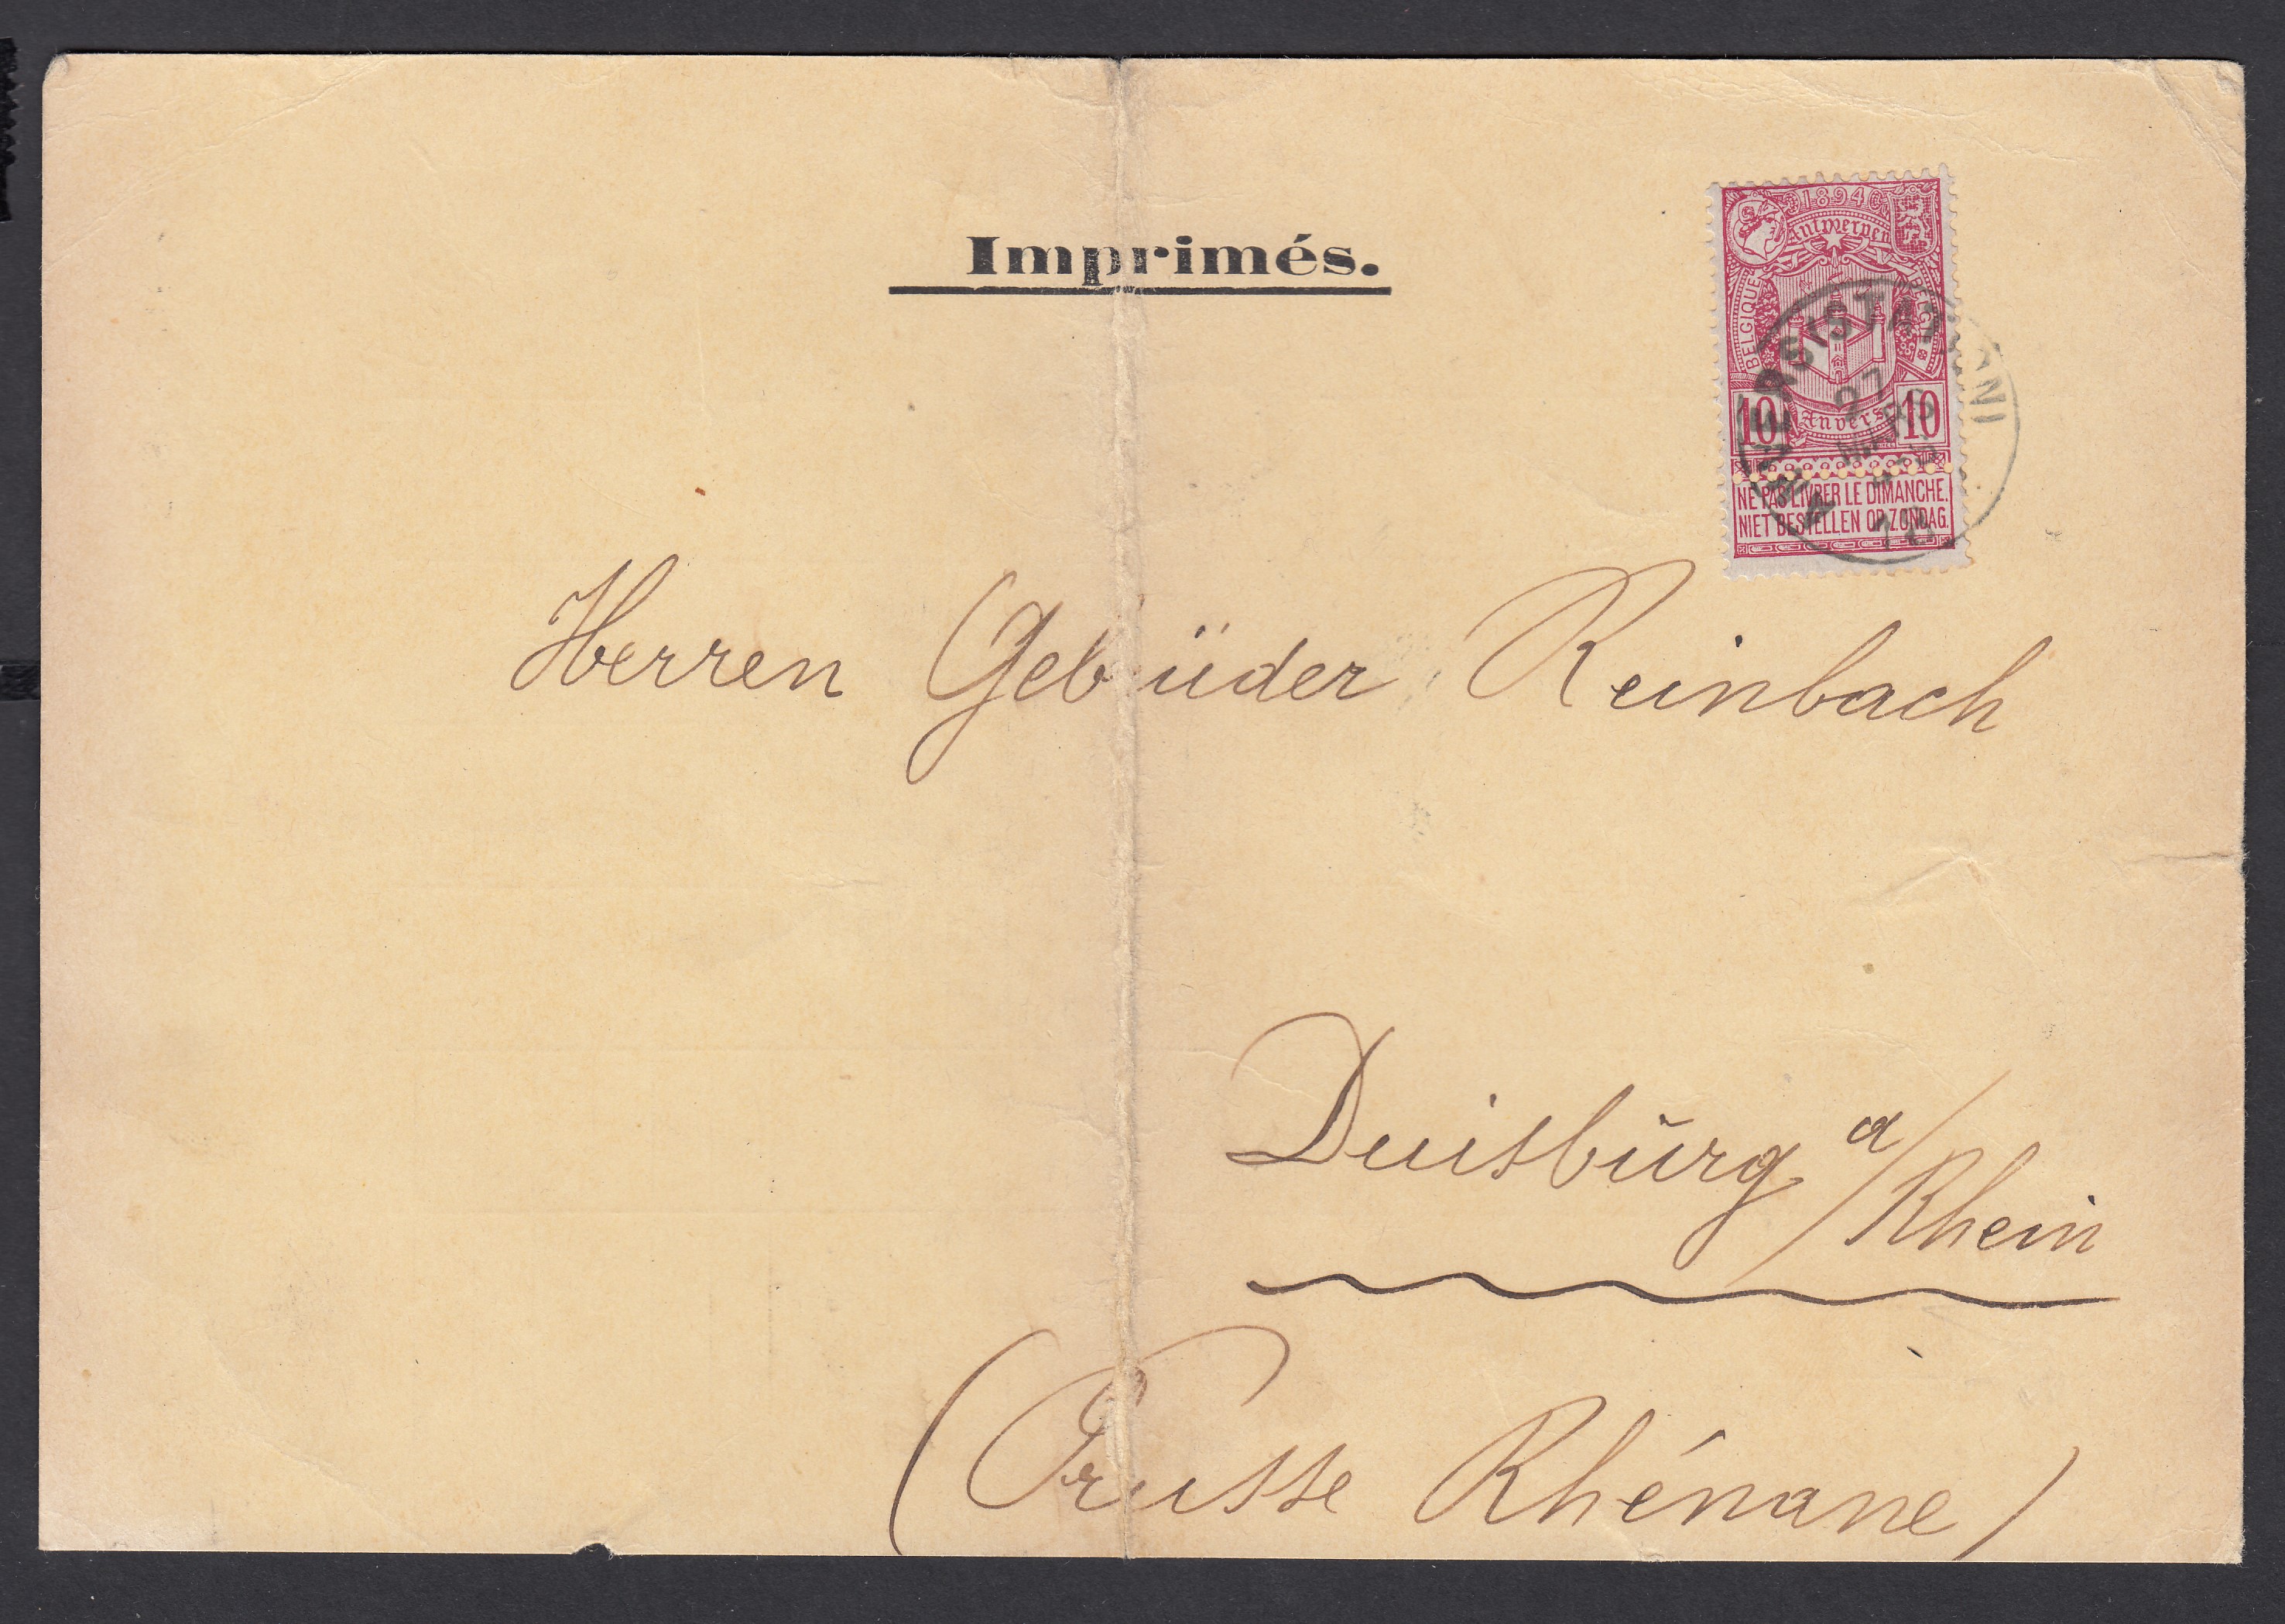 Imprimés.
1894
Antwerpen
BELGIQUE
BELGIË
10 Anvers 10
NE PAS LIVRER LE DIMANCHE.
NIET BESTELLEN OP ZONDAG.
27
MARS
Herren Gebrüder Reinbach
Duisburg a/Rhein
(Prusse Rhénane)